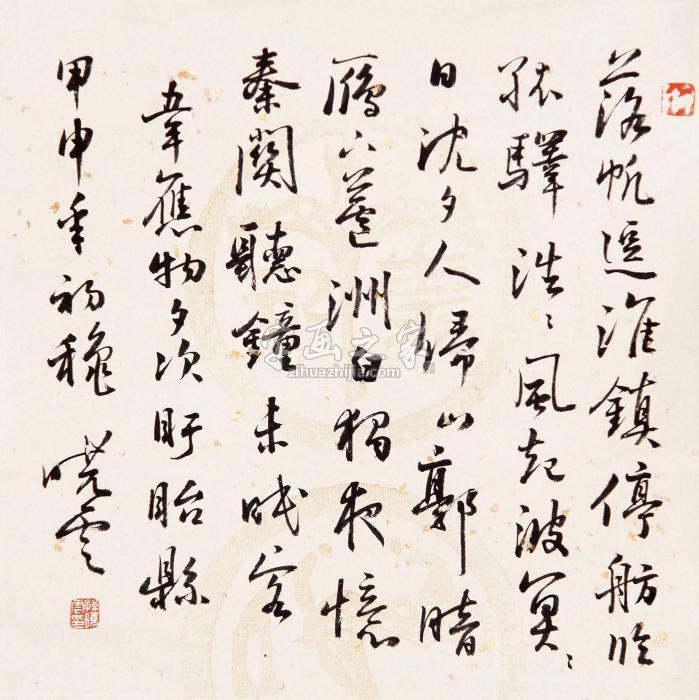 落帆逗淮鎮停舫臨
孤驛浩〻風起波冥〻
日沈夕人歸山郭暗
雁下蘆洲白獨夜憶
秦關聽鐘未眠客
韋應物夕次盱眙縣
甲申年初秋 曉雲
字画之家
zihuazhijia.com